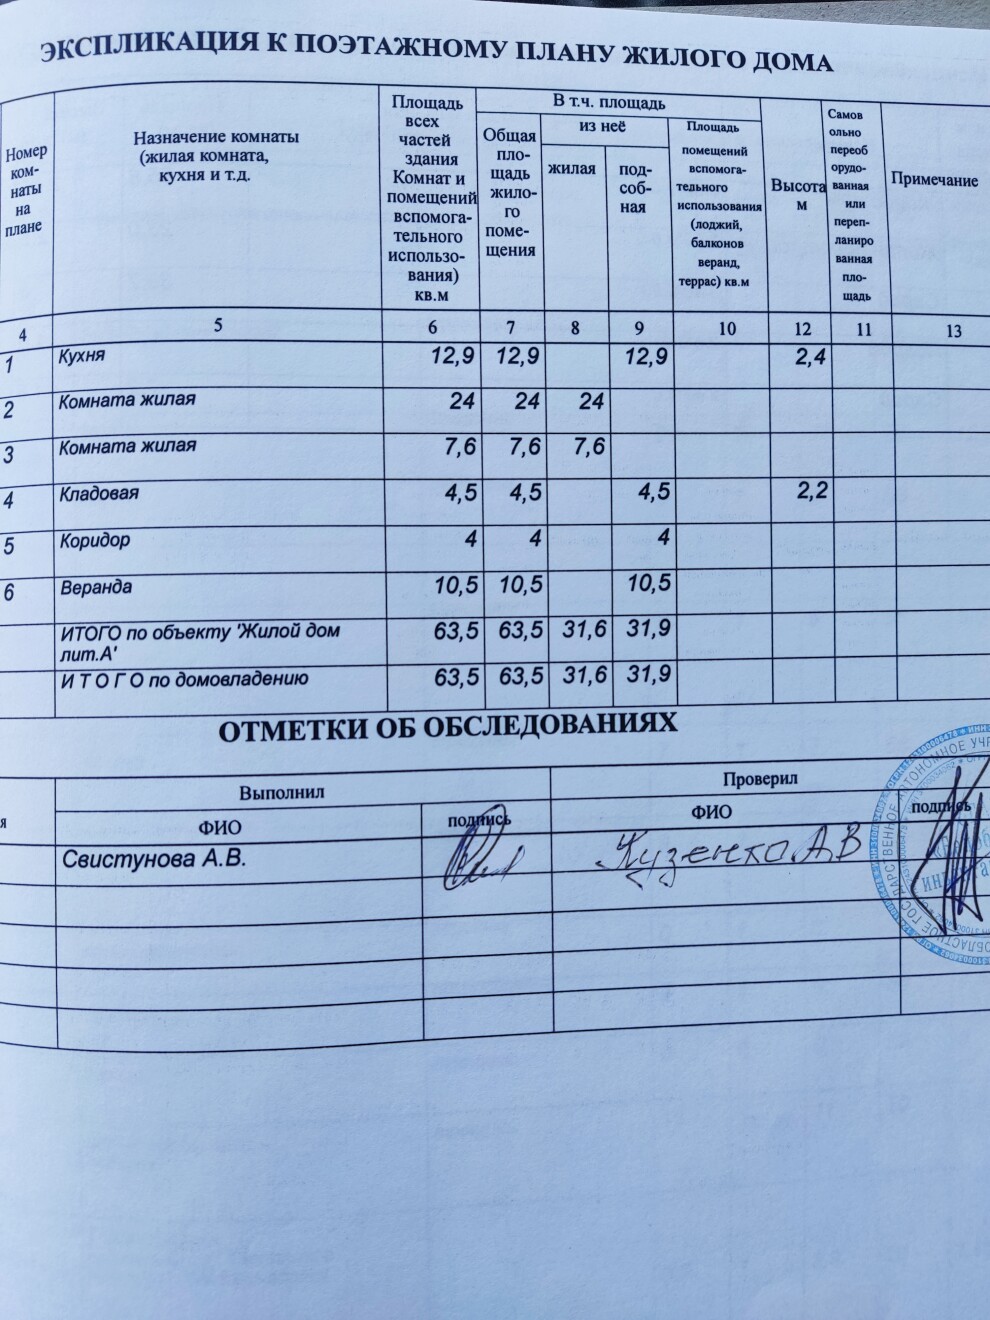 ЭКСПЛИКАЦИЯ К ПОЭТАЖНОМУ ПЛАНУ ЖИЛОГО ДОМА
Номер
ком-
наты
на
плане
Назначение комнаты
(жилая комната,
кухня и т.д.
Площадь
всех
частей
здания
Комнат и
помещений
вспомога-
тельного
использо-
вания)
кв.м
В т.ч. площадь
Общая
пло-
щадь
жило-
го
поме-
щения
из неё
жилая
под-
соб-
ная
Площадь
помещений
вспомога-
тельного
использования
(лоджий,
балконов
веранд,
террас) кв.м
Высота
м
Самов
ольно
переоб
орудо-
ванная
или
переп-
ланиро
ванная
пло-
щадь
Примечание
4 5 6 7 8 9 10 12 11 13
1 Кухня 12,9 12,9 12,9 2,4
2 Комната жилая 24 24 24
3 Комната жилая 7,6 7,6 7,6
4 Кладовая 4,5 4,5 4,5 2,2
5 Коридор 4 4 4
6 Веранда 10,5 10,5 10,5
ИТОГО по объекту 'Жилой дом
лит.А' 63,5 63,5 31,6 31,9
И Т О Г О по домовладению 63,5 63,5 31,6 31,9
ОТМЕТКИ ОБ ОБСЛЕДОВАНИЯХ
я
Выполнил Проверил
ФИО подпись ФИО подпись
Свистунова А.В. Кузенко А В